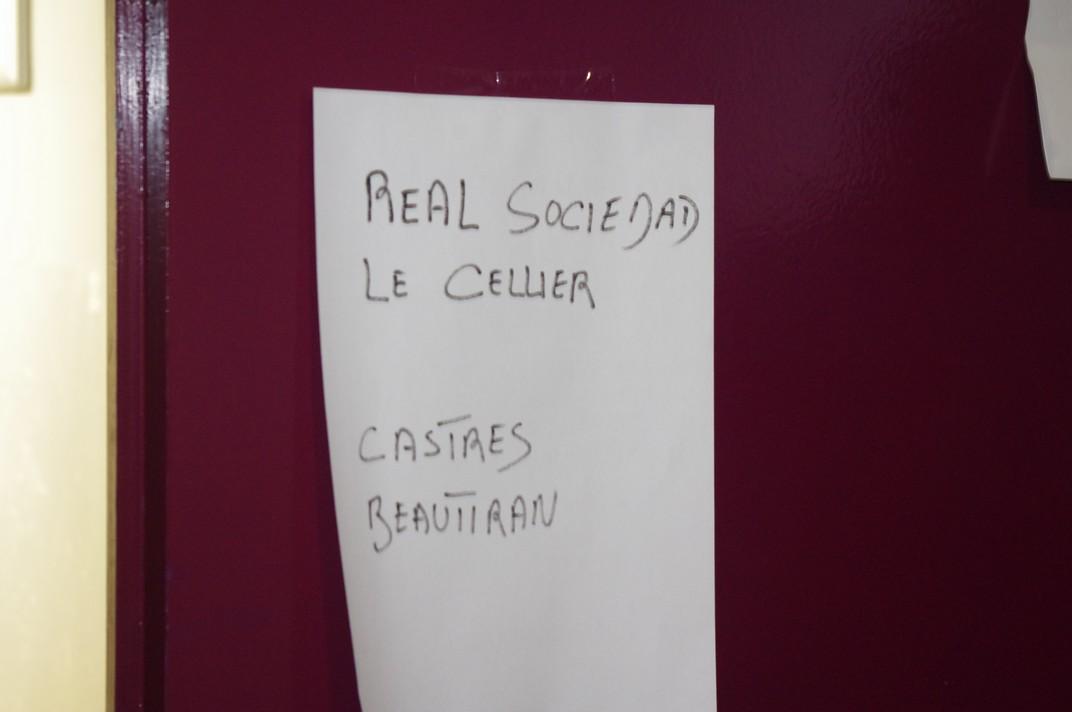 REAL SOCIEDAD
LE CELLIER
CASTRES
BEAUTIRAN